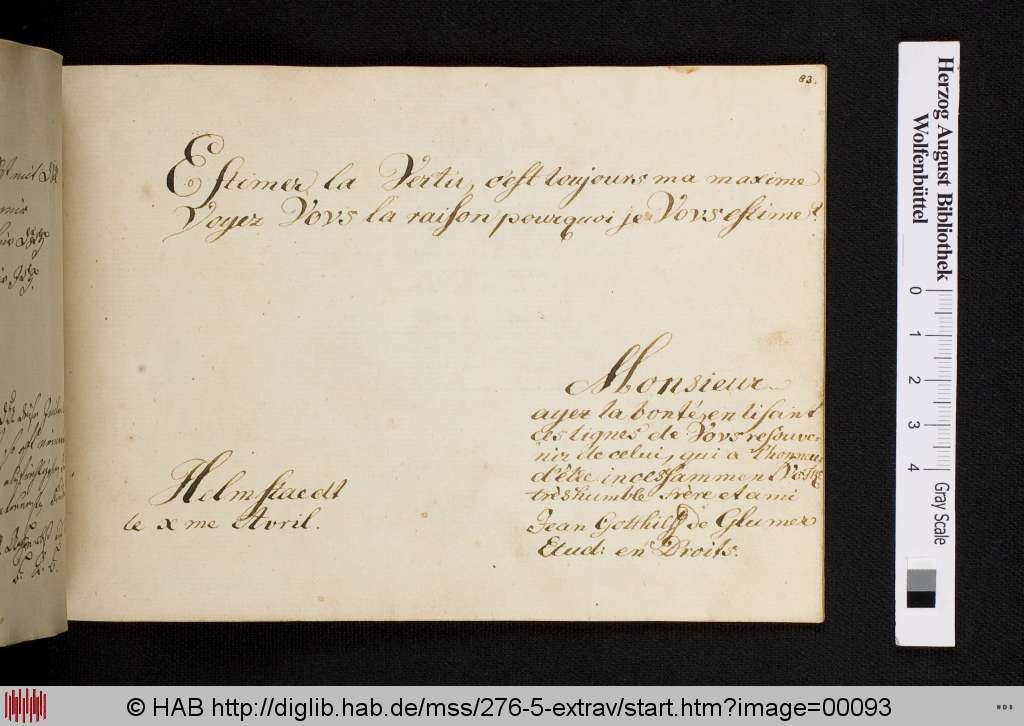 83.
Estimer la Vertu, c'est toujours ma maxime
Voyez Vovs la raison pourquoi je Vovs estime.
Monsieur
ayez la bonté, en lisant
ces lignes de Vovs resouve-
nir de celui, qui a l'honneur
d'être incessamment Votre
très humble frère et ami
Jean Gotthilf de Glumer
Etud: en Droits.
Helmstaedt
le x me Avril.
Herzog August Bibliothek
Wolfenbüttel
0 1 2 3 4
Gray Scale
© HAB http://diglib.hab.de/mss/276-5-extrav/start.htm?image=00093
WDB